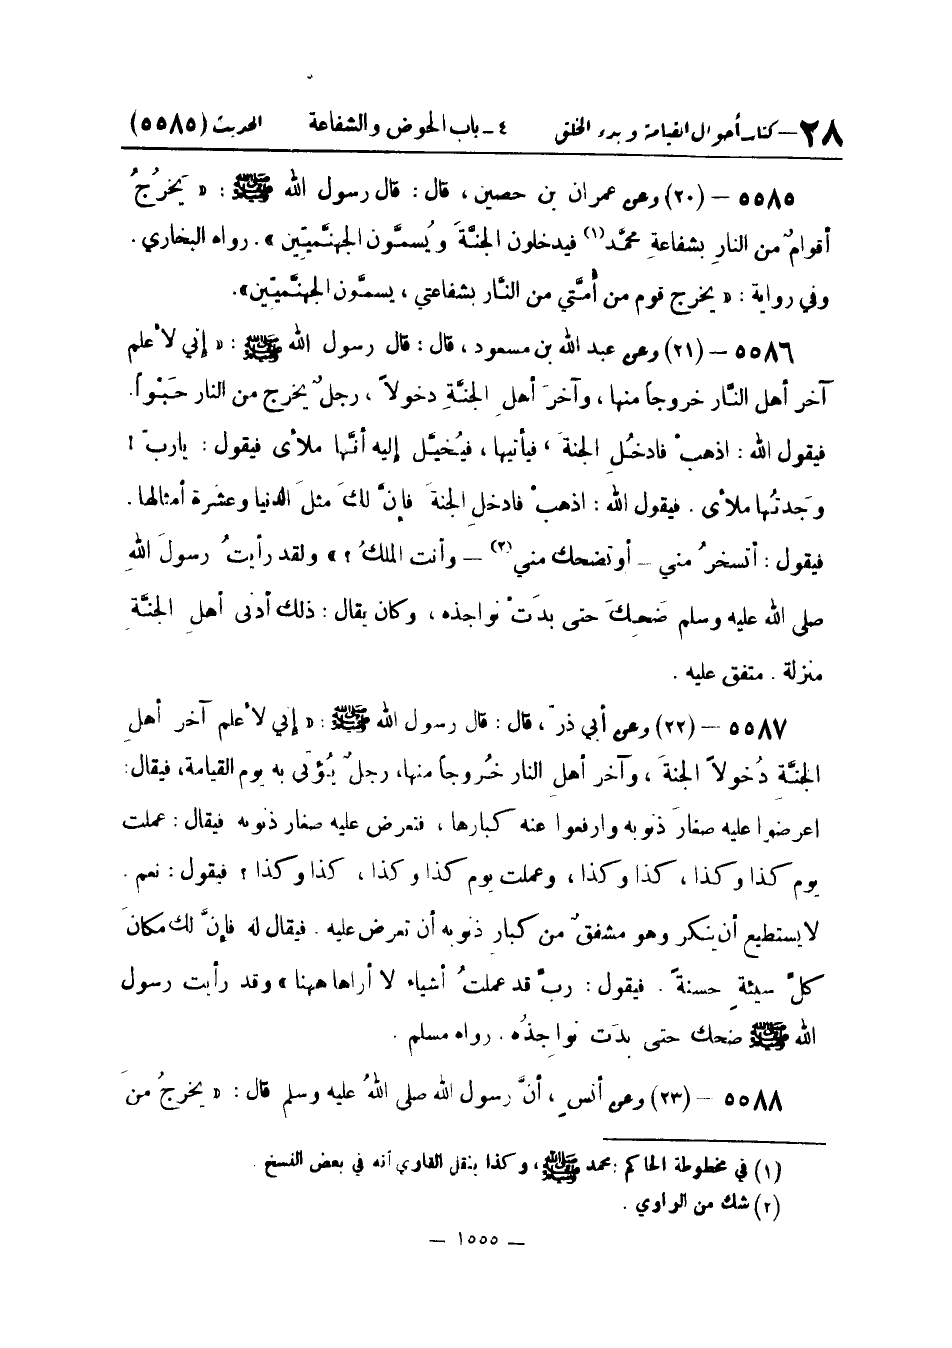 ٢٨ – كتاب أحوال القيامة وبدء الخلق ٤ – باب الحوض والشفاعة الحديث (٥٥٨٥)
٥٥٨٥ – (٢٠) وعن عمران بن حصين ، قال : قال رسول الله ﷺ : « يَخرُجُ
أقوامٌ من النارِ بشفاعةِ محمَّد(١) فيدخلون الجنَّةَ ويُسمَّون الجهنَّميّين » . رواه البخاري .
وفي رواية : « يخرج قوم من أُمَّتي من النَّار بشفاعتي ، يسمَّون الجهنَّميّين» .
٥٥٨٦ – (٢١) وعن عبد الله بن مسعود ، قال : قال رسول الله ﷺ : « إني لأعلم
آخر أهل النَّار خروجاً منها ، وآخرَ أهلِ الجنَّةِ دخولاً ، رجلٌ يخرج من النار حَبْواً .
فيقول الله : اذهبْ فادخُلِ الجنةَ ، فيأتيها ، فيُخيَّل إليه أنَّها ملأى فيقول : يارب !
وجدتُها ملأى . فيقول الله : اذهبْ فادخلِ الجنةَ فإنَّ لكَ مثلَ الدنيا وعشرة أمثالها .
فيقول : أتسخرُ مني – أو تضحك مني(٢) – وأنت الملكُ ؟ » ولقد رأيتُ رسولَ اللهِ
صلى الله عليه وسلم ضَحِكَ حتى بدَتْ نواجذه ، وكان يقال : ذلك أدنى أهلِ الجنَّةِ
منزلة . متفق عليه .
٥٥٨٧ – (٢٢) وعن أبي ذرّ ، قال : قال رسول الله ﷺ : « إني لأعلم آخر أهلِ
الجنَّةِ دُخولاً الجنةَ ، وآخر أهلِ النار خُروجاً منها، رجلٌ يُؤتى به يوم القيامة، فيقال:
اعرضوا عليه صغارَ ذنوبه وارفعوا عنه كبارها ، فتعرض عليه صغار ذنوبه فيقال : عملت
يوم كذا وكذا ، كذا وكذا ، وعملت يوم كذا وكذا ، كذا وكذا ؟ فيقول : نعم .
لا يستطيع أن ينكر وهو مشفقٌ من كبار ذنوبه أن تعرض عليه . فيقال له فإنَّ لك مكانَ
كلِّ سيئةٍ حسنةً . فيقول : ربِّ قد عملتُ أشياء لا أراها ههنا » وقد رأيت رسول
الله ﷺ ضحك حتى بدَت نواجذُه . رواه مسلم .
٥٥٨٨ – (٢٣) وعن أنسٍ ، أنَّ رسول الله صلى اللهُ عليه وسلم قال : « يخرجُ منَ
(١) في مخطوطة الحاكم : محمد ﷺ ، وكذا ينقل القاري أنه في بعض النسخ .
(٢) شك من الراوي .
– ١٥٥٥ –